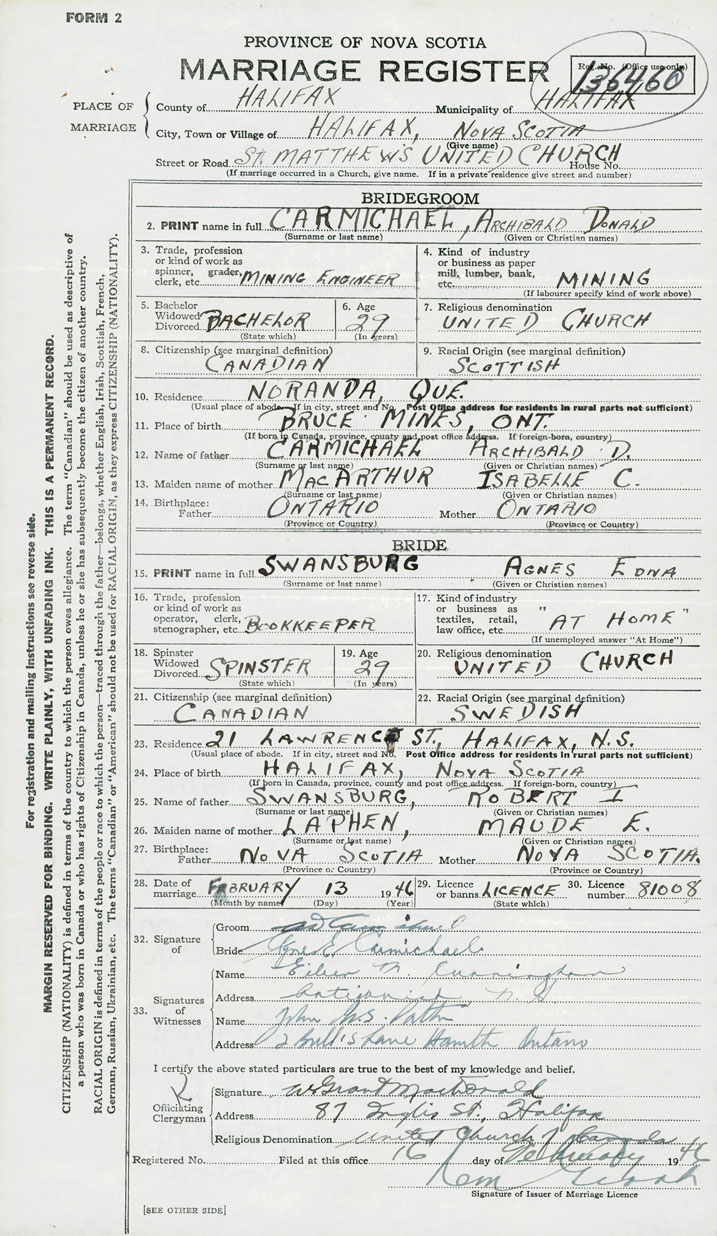 FORM 2
PROVINCE OF NOVA SCOTIA
MARRIAGE REGISTER
Reg. No. (Office use only)
136460
PLACE OF MARRIAGE
County of HALIFAX Municipality of HALIFAX
City, Town or Village of HALIFAX, NOVA SCOTIA
(Give name)
Street or Road ST. MATTHEWS UNITED CHURCH House No.
(If marriage occurred in a Church, give name. If in a private residence give street and number)
BRIDEGROOM
2. PRINT name in full CARMICHAEL, ARCHIBALD DONALD
(Surname or last name) (Given or Christian names)
3. Trade, profession or kind of work as spinner, grader, clerk, etc. MINING ENGINEER
4. Kind of industry or business as paper mill, lumber, bank, etc. MINING
(If labourer specify kind of work above)
5. Bachelor Widowed Divorced BACHELOR
(State which)
6. Age 29
(In years)
7. Religious denomination
UNITED CHURCH
8. Citizenship (see marginal definition)
CANADIAN
9. Racial Origin (see marginal definition)
SCOTTISH
10. Residence NORANDA, QUE.
(Usual place of abode. If in city, street and No. Post Office address for residents in rural parts not sufficient)
11. Place of birth BRUCE MINES, ONT.
(If born in Canada, province, county and post office address. If foreign-born, country)
12. Name of father CARMICHAEL ARCHIBALD D.
(Surname or last name) (Given or Christian names)
13. Maiden name of mother MACARTHUR ISABELLE C.
(Surname or last name) (Given or Christian names)
14. Birthplace: Father ONTARIO Mother ONTARIO
(Province or Country) (Province or Country)
BRIDE
15. PRINT name in full SWANSBURG AGNES EDNA
(Surname or last name) (Given or Christian names)
16. Trade, profession or kind of work as operator, clerk, stenographer, etc. BOOKKEEPER
17. Kind of industry or business as textiles, retail, law office, etc. "AT HOME"
(If unemployed answer "At Home")
18. Spinster Widowed Divorced SPINSTER
(State which)
19. Age 29
(In years)
20. Religious denomination
UNITED CHURCH
21. Citizenship (see marginal definition)
CANADIAN
22. Racial Origin (see marginal definition)
SWEDISH
23. Residence 21 LAWRENCE ST, HALIFAX, N.S.
(Usual place of abode. If in city, street and No. Post Office address for residents in rural parts not sufficient)
24. Place of birth HALIFAX, NOVA SCOTIA
(If born in Canada, province, county and post office address. If foreign-born, country)
25. Name of father SWANSBURG, ROBERT I
(Surname or last name) (Given or Christian names)
26. Maiden name of mother LAPHEN, MAUDE E.
(Surname or last name) (Given or Christian names)
27. Birthplace: Father NOVA SCOTIA Mother NOVA SCOTIA.
(Province or Country) (Province or Country)
28. Date of marriage FEBRUARY 13 1946
(Month by name) (Day) (Year)
29. Licence or banns LICENCE
(State which)
30. Licence number 81008
32. Signature of
Groom
Bride Agnes E. Carmichael
33. Signatures of Witnesses
Name Eileen M. Cunningham
Address Antigonish N.S.
Name John
Address Lane Hamilton Ontario
I certify the above stated particulars are true to the best of my knowledge and belief.
Officiating Clergyman
Signature W Grant MacDonald
Address 87 Inglis St., Halifax
Religious Denomination United Church of Canada
Registered No. Filed at this office 16 day of February 1946
Signature of Issuer of Marriage Licence
[SEE OTHER SIDE]
For registration and mailing instructions see reverse side.
MARGIN RESERVED FOR BINDING. WRITE PLAINLY, WITH UNFADING INK. THIS IS A PERMANENT RECORD.
CITIZENSHIP (NATIONALITY) is defined in terms of the country to which the person owes allegiance. The term "Canadian" should be used as descriptive of
a person who was born in Canada or who has rights of Citizenship in Canada, unless he or she has subsequently become the citizen of another country.
RACIAL ORIGIN is defined in terms of the people or race to which the person—traced through the father—belongs, whether English, Irish, Scottish, French,
German, Russian, Ukrainian, etc. The terms "Canadian" or "American" should not be used for RACIAL ORIGIN, as they express CITIZENSHIP (NATIONALITY).